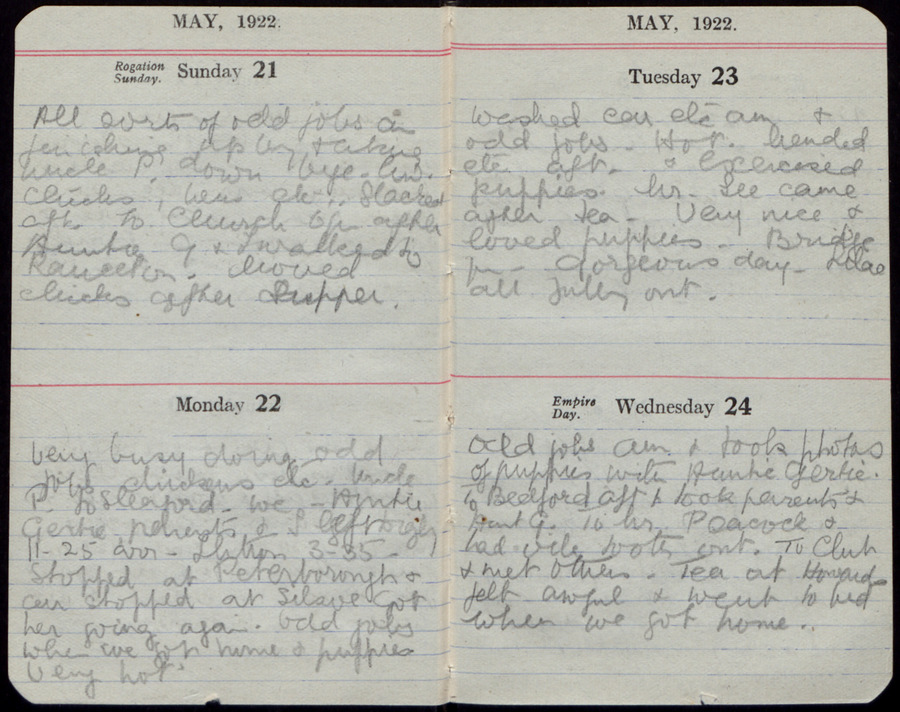 MAY, 1922.
Rogation
Sunday. Sunday 21
All sorts of odd jobs
up by taking
Uncle P. down bye.
Chicks, hens etc. Slacked
aft. To Church 6 p.m. after
Auntie G & I walked to
Rauceton. Moved
chicks after Supper.
Monday 22
Very busy doing odd
jobs chickens etc. Uncle
P. to Sleaford. We - Auntie
Gertie parents & I left
11-25 arr. 3-35 -
Stopped at Peterborough &
car stopped at Silsoe Got
her going again. Odd jobs
when we got home & puppies
Very hot.
MAY, 1922.
Tuesday 23
Washed car etc am &
odd jobs. Hot. Mended
etc aft. & Exercised
puppies. Mr. Lee came
after tea - Very nice &
loved puppies - Bridge
Gorgeous day - Lilac
all fully out.
Empire
Day. Wednesday 24
Odd jobs am & took photos
of puppies with Auntie Gertie.
To Bedford aft & took parents &
Aunt G. To Mr. Peacock &
had vile tooth out. To Club
& met others. Tea at Howards
felt awful & went to bed
when we got home..